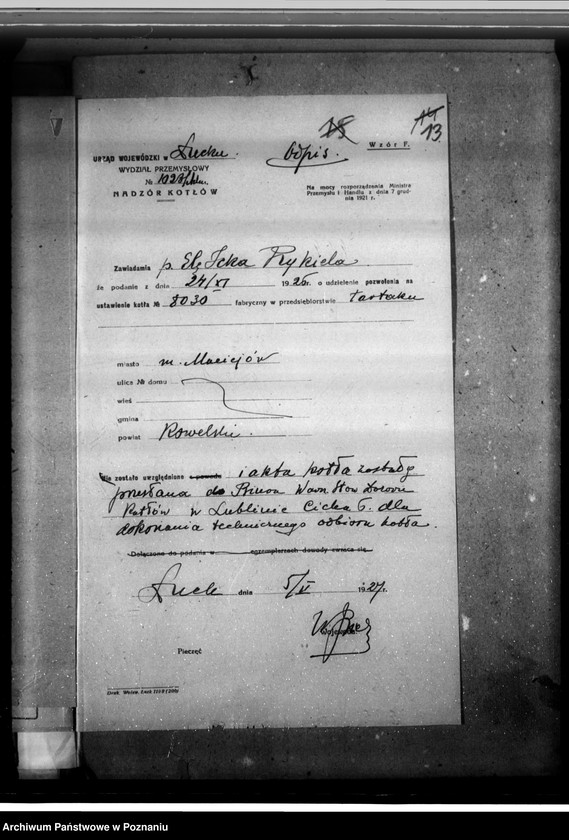 13
Wzór F.
URZĄD WOJEWÓDZKI w Łucku.
Odpis.
WYDZIAŁ PRZEMYSŁOWY
№
NADZÓR KOTŁÓW
Na mocy rozporządzenia Ministra
Przemysłu i Handlu z dnia 7 grud-
nia 1921 r.
Zawiadamia p. Elę Icka Rykiela
że podanie z dnia 24/XI 1926 r. o udzielenie pozwolenia na
ustawienie kotła № 8030 fabryczny w przedsiębiorstwie tartaku
miasto m. Maciejów
ulica № domu
wieś
gmina
powiat Kowelski.
Nie zostało uwzględnione z powodu i akta kotła zostały
przesłana do Biura Warsz Stow Dozoru
Kotłów w Lublinie Cicha 6. dla
dokonania technicznego odbioru kotła.
Dołączone do podania w egzemplarzach dowody zwraca się.
Łuck dnia 5/V 1927 r.
Wojewoda
Pieczęć
Druk. Wojew. Łuck
Archiwum Państwowe w Poznaniu